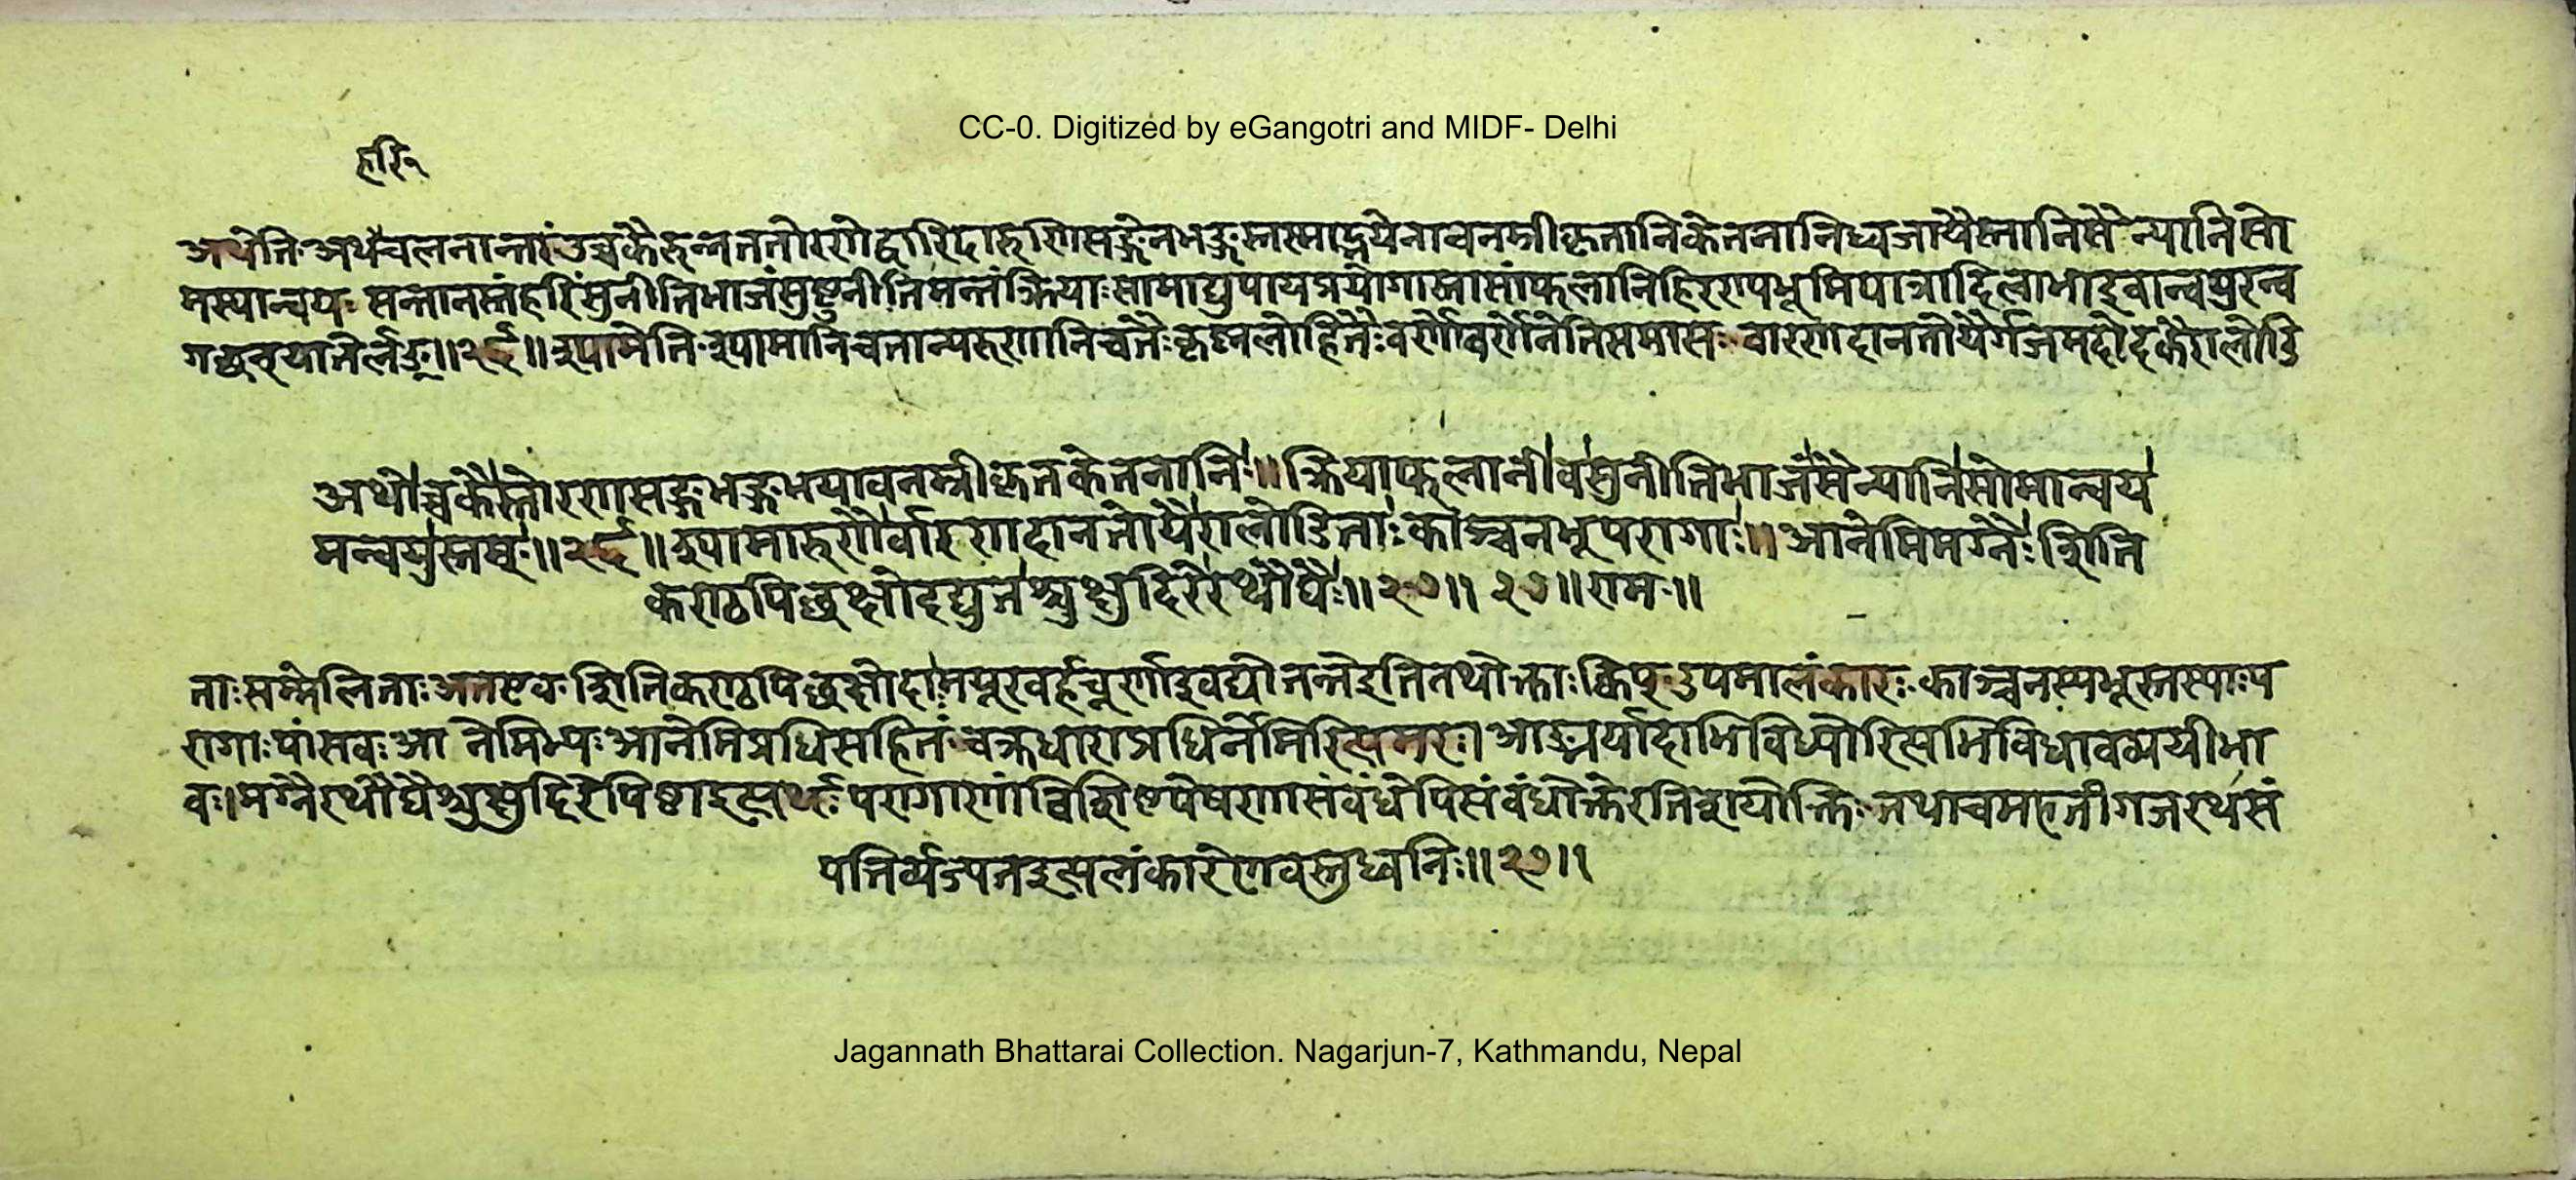 CC-0. Digitized by eGangotri and MIDF- Delhi
हरि१
अथेति अथ चलनानन्तरं उच्चकैरुन्नततोरणे द्वारिदारुणि सङ्गेन भङ्गस्तस्माद्भयेनावनम्रीकृतानि केतनानि ध्वजा यैस्तानि सैन्यानि सो
मस्यान्वयः सन्तानस्तं हरिं सुनीतिभाजं सुष्टुनीतिमन्तं क्रियाः सामाद्युपायप्रयोगास्तासां फलानि हिरण्यभूमिपात्रादिलाभा इवान्वयुरन्व
गच्छन् यातेर्लङ् ॥२६॥ श्यामेति श्यामानि च तान्यरुणानि च तैः कृष्णलोहितैः वर्णो वर्णेनेति समासः वारणदानतोयैर्गजमदोदकैरालोडि
अथोच्चकैस्तोरणसङ्गभङ्गभयावनम्रीकृतकेतनानि ॥ क्रियाफलानीव सुनीतिभाजं सैन्यानि सोमान्वय
मन्वयुस्तम् ॥२६॥ श्यामारुणैर्वारणदानतोयैरालोडिताः काञ्चनभूपरागाः ॥ आनेमिमग्नैः शिति
कण्ठपिच्छक्षोदद्युतश्चुक्षुदिरे रथौघैः ॥२७॥ २७॥ राम ॥
ताः सम्मेलिताः अत एव शितिकण्ठपिच्छक्षोदा मयूरबर्हचूर्णा इव द्योतन्ते इति तथोक्ताः क्विप् उपमालंकारः काञ्चनस्य भूस्तस्याः प
रागाः पांसवः आ नेमिभ्यः आनेमि प्रधिसहितं चक्रधारा प्रधिर्नेमिरित्यमरः। आङ्मर्यादाभिविध्योरित्यभिविधावव्ययीभा
वः। मग्नै रथौघैश्चुक्षुदिरे पिष्टा इत्यर्थः परागाणां विशिष्टपेषणासंबंधेपि संबंधोक्तेरतिशयोक्तिः तथा च महती गजरथसं
पत्तिर्व्यज्यत इत्यलंकारेण वस्तुध्वनिः ॥२७॥
Jagannath Bhattarai Collection. Nagarjun-7, Kathmandu, Nepal